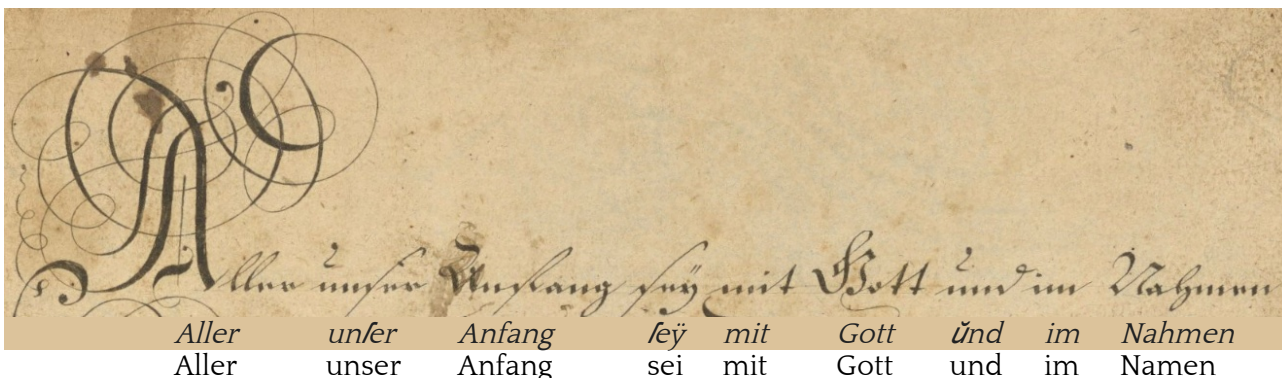 Aller unser Anfang seÿ mit Gott und im Nahmen
Aller unſer Anfang ſeÿ mit Gott ŭnd im Nahmen
Aller unser Anfang sei mit Gott und im Namen